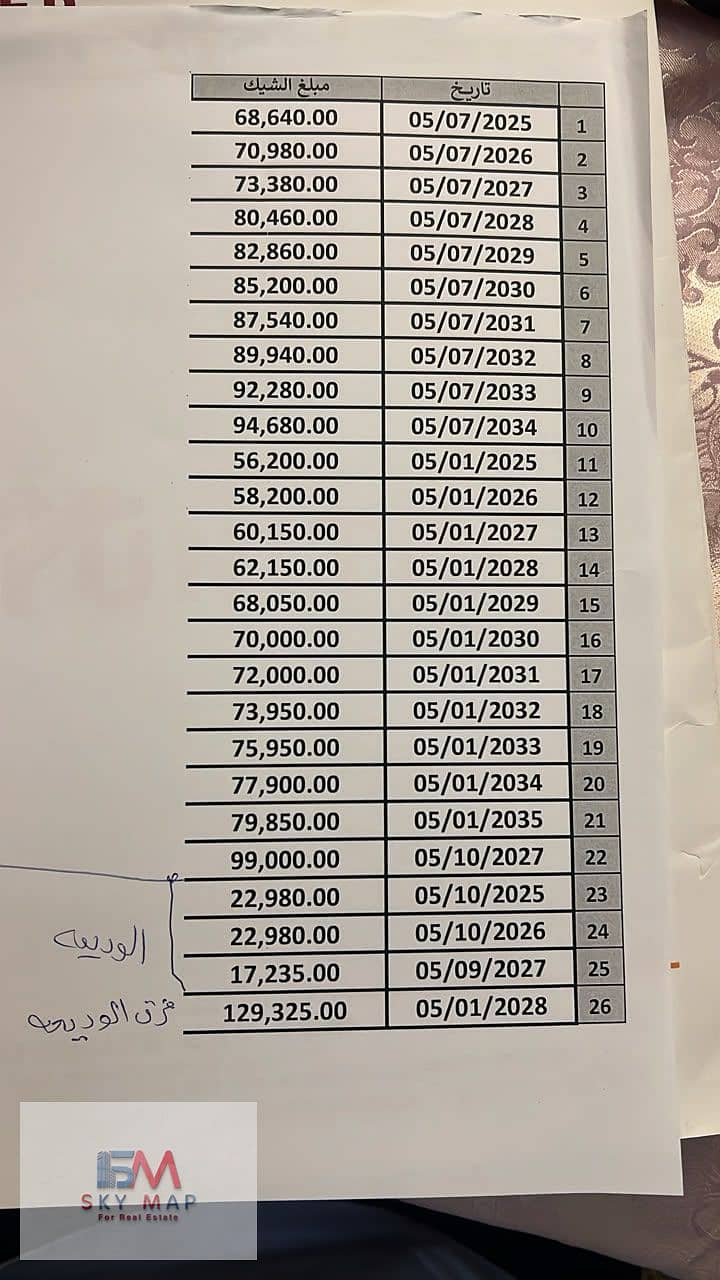 تاريخ مبلغ الشيك
1 05/07/2025 68,640.00
2 05/07/2026 70,980.00
3 05/07/2027 73,380.00
4 05/07/2028 80,460.00
5 05/07/2029 82,860.00
6 05/07/2030 85,200.00
7 05/07/2031 87,540.00
8 05/07/2032 89,940.00
9 05/07/2033 92,280.00
10 05/07/2034 94,680.00
11 05/01/2025 56,200.00
12 05/01/2026 58,200.00
13 05/01/2027 60,150.00
14 05/01/2028 62,150.00
15 05/01/2029 68,050.00
16 05/01/2030 70,000.00
17 05/01/2031 72,000.00
18 05/01/2032 73,950.00
19 05/01/2033 75,950.00
20 05/01/2034 77,900.00
21 05/01/2035 79,850.00
22 05/10/2027 99,000.00
23 05/10/2025 22,980.00
24 05/10/2026 22,980.00
الوديعه
25 05/09/2027 17,235.00
26 05/01/2028 129,325.00
فرق الوديعه
SKY MAP
For Real Estate